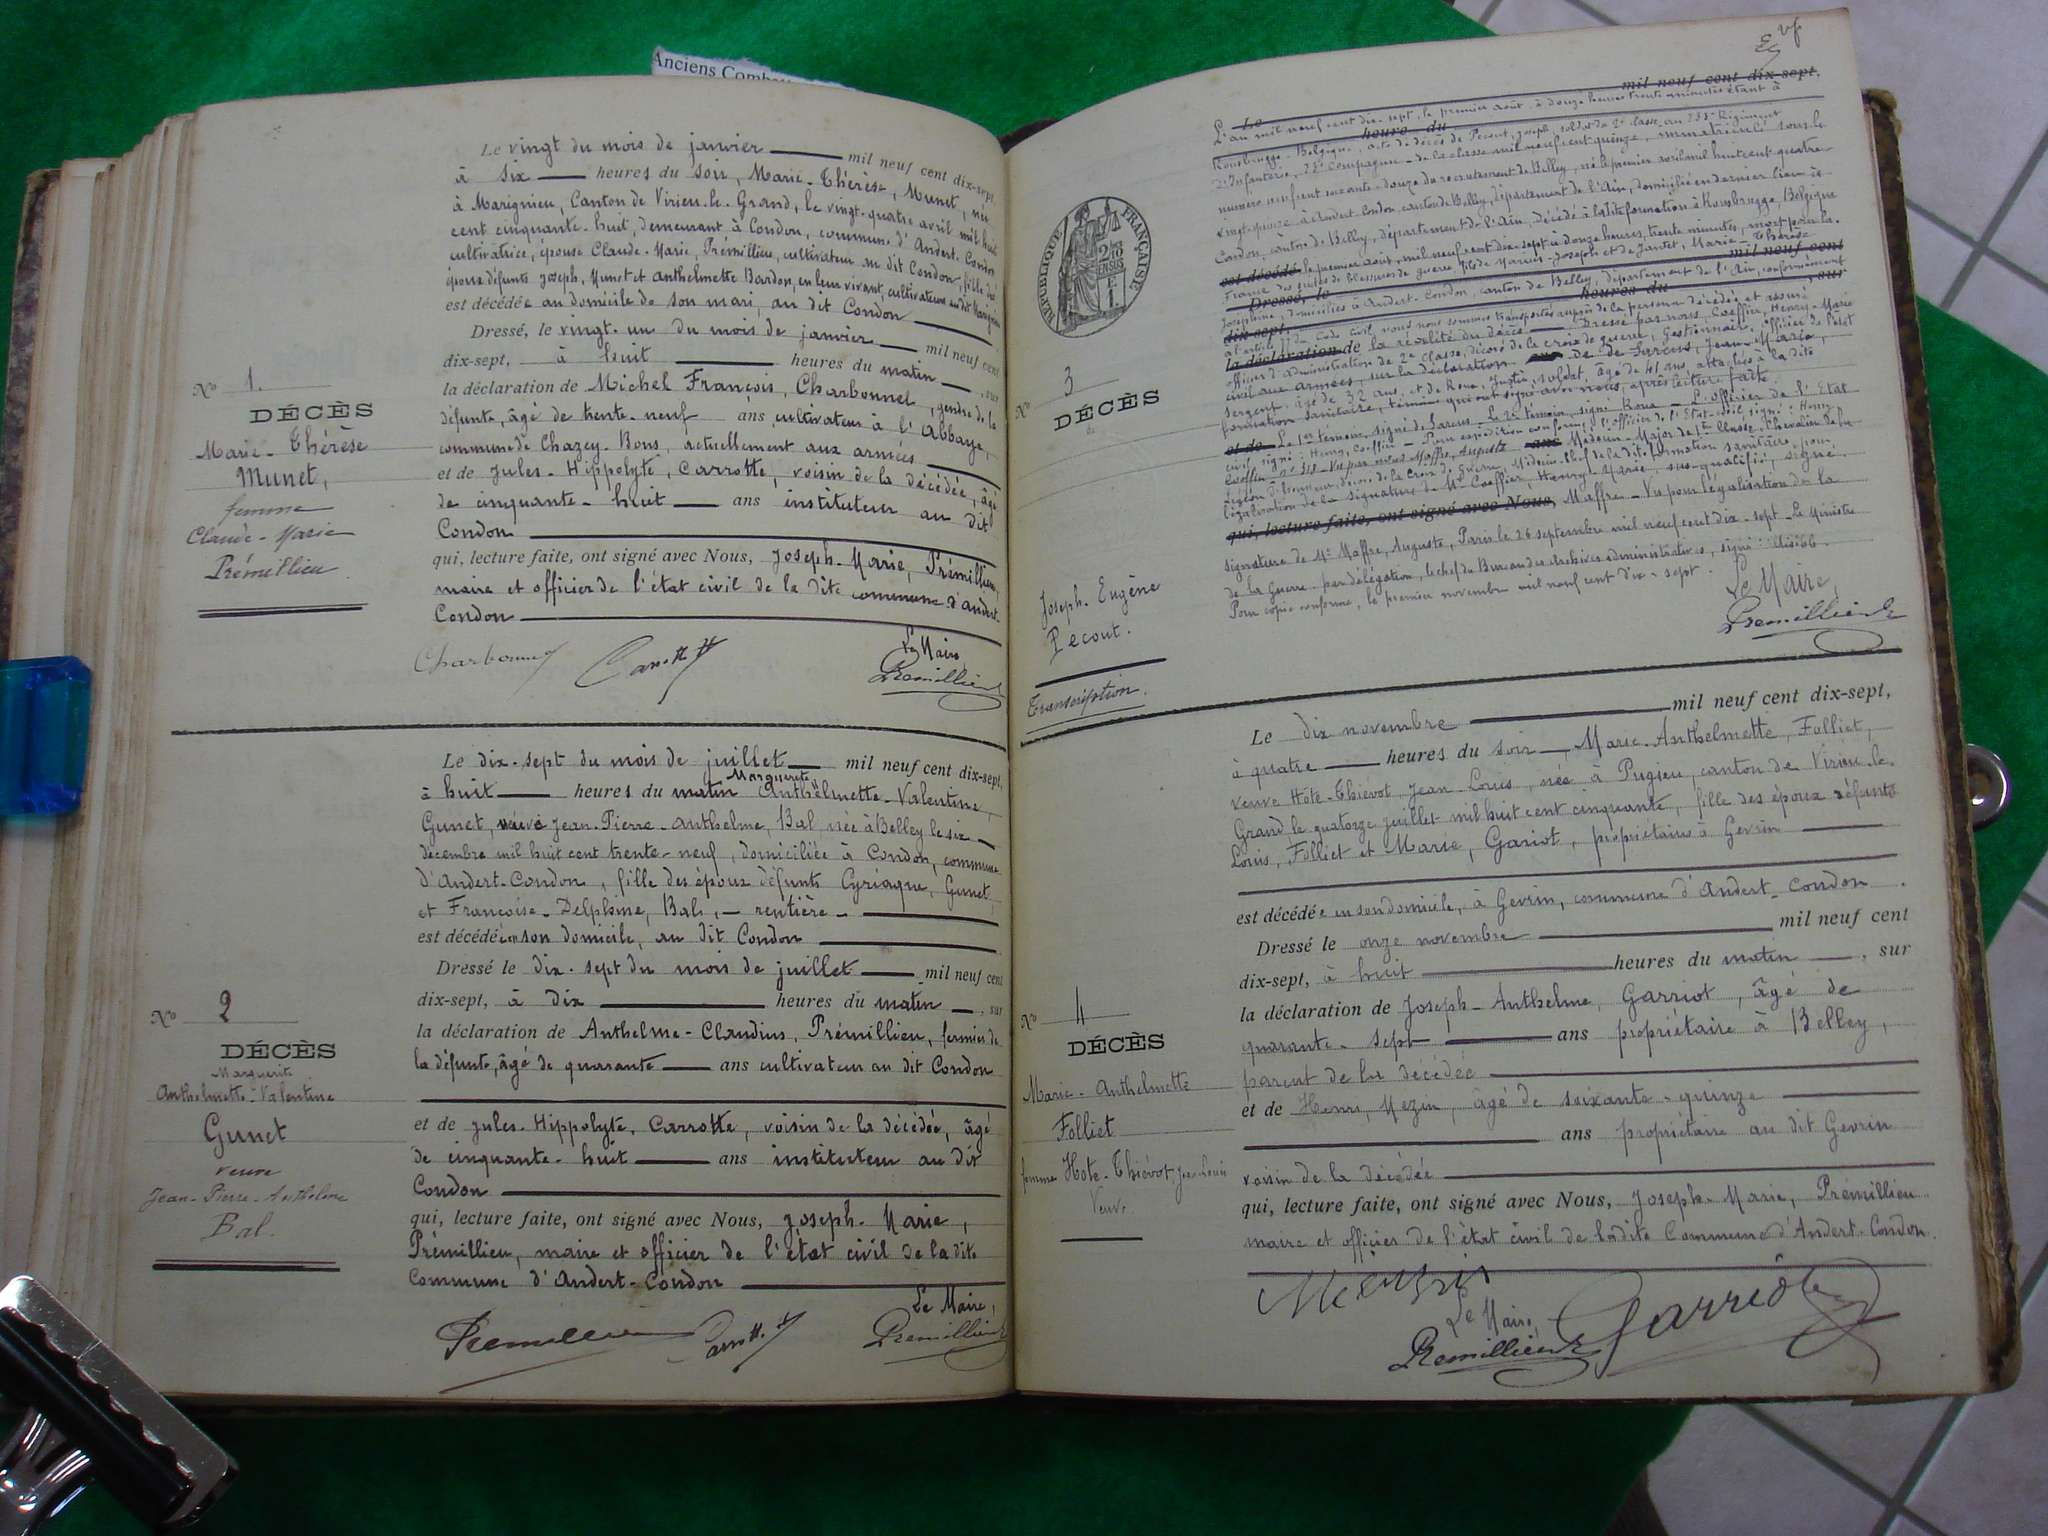 Anciens Combat
Le vingt du mois de janvier mil neuf cent dix-sept,
à six heures du soir, Marie-Thérèse, Munet, née
à Marignieu, Canton de Virieu-le-Grand, le vingt-quatre avril mil huit
cent cinquante-huit, demeurant à Condon, commune d'Andert-Condon
cultivatrice, épouse Claude-Marie, Prémillieu, cultivateur au dit Condon, fille des
époux défunts Joseph, Munet et Anthelmette Bardon, en leur vivant, cultivateurs au dit Marignieu
est décédée au domicile de son mari, au dit Condon
Dressé, le vingt-un du mois de janvier mil neuf cent
dix-sept, à huit heures du matin, sur
la déclaration de Michel François, Charbonnel, gendre de la
défunte, âgé de trente-neuf ans cultivateur à l'Abbaye,
commune de Chazey-Bons, actuellement aux armées
et de Jules-Hippolyte, Carrotte, voisin de la décédée, âgé
de cinquante-huit ans instituteur au dit
Condon
qui, lecture faite, ont signé avec Nous, Joseph-Marie, Prémillieu,
maire et officier de l'état civil de la dite commune d'Andert-
Condon
Le Maire,
Charbonnel Carrotte Premillieu
No 1.
DÉCÈS
Marie-Thérèse
Munet,
femme
Claude-Marie
Prémillieu
Le dix-sept du mois de juillet mil neuf cent dix-sept,
Marguerite
à huit heures du matin Anthelmette-Valentine,
Gunet, veuve Jean-Pierre-Anthelme, Bal, née à Belley le six
décembre mil huit cent trente-neuf, domiciliée à Condon, commune
d'Andert-Condon, fille des époux défunts Cyriaque, Gunet,
et Françoise-Delphine, Bal, - rentière -
est décédée en son domicile, au dit Condon
Dressé le dix-sept du mois de juillet mil neuf cent
dix-sept, à dix heures du matin, sur
la déclaration de Anthelme-Claudius, Prémillieu, fermier de
la défunte, âgé de quarante ans cultivateur au dit Condon
et de Jules-Hippolyte, Carrotte, voisin de la décédée, âgé
de cinquante-huit ans instituteur au dit
Condon
qui, lecture faite, ont signé avec Nous, Joseph-Marie,
Prémillieu, maire et officier de l'état civil de la dite
Commune d'Andert-Condon
Le Maire,
Premillieu Carrotte Premillieu
No 2
DÉCÈS
Marguerite
Anthelmette-Valentine
Gunet
veuve
Jean-Pierre-Anthelme
Bal.
RÉPUBLIQUE FRANÇAISE
mil neuf cent dix-sept.
Le
L'an mil neuf cent dix-sept, le premier août, à douze heures trente minutes étant à
heure du
Rousbrugge-Belgique, acte de décès de Pecout, Joseph, soldat de 2e classe au Régiment
d'Infanterie, Compagnie - de la classe mil neuf cent quinze, immatriculé sous le
numéro neuf cent soixante-douze du recrutement de Belley, né le premier avril mil huit cent quatre-
vingt-quinze à Andert-Condon, canton de Belley, département de l'Ain, domicilié en dernier lieu à
Condon, canton de Belley, département de l'Ain, décédé à la dite formation à Rousbrugge, Belgique
est décédé le premier août, mil neuf cent dix-sept à douze heures, trente minutes, mort pour la
France des suites de blessures de guerre, fils de Joseph et de Jantet, Marie-Thérèse
Dressé, le mil neuf cent
Joséphine, domiciliés à Andert-Condon, canton de Belley, département de l'Ain, conformément
dix-sept, heures du, sur
à l'article 77 du Code Civil, nous nous sommes transportés auprès de la personne décédée et assuré
la déclaration de la réalité du décès - Dressé par nous, Coeffier, Henry-Marie
officier d'administration de 2e classe, décoré de la croix de guerre, Gestionnaire, officier de l'état
civil aux armées, sur la déclaration de de Larcus, Jean-Marie,
sergent, âgé de 32 ans, et de Roua, Justin, soldat, âgé de 41 ans, attachés à la dite
formation sanitaire, témoins qui ont signé avec nous, après lecture faite.
et de Le 1er témoin, signé de Larcus - Le 2e témoin, signé Roua - L'officier de l'Etat
civil signé: Henry, Coeffier - Pour expédition conforme, l'officier de l'Etat-civil signé: Henry
Coeffier - Vu par nous Maffre, Auguste ans Médecin-Major de 1re classe, Chevalier de la
Légion d'honneur, décoré de la Croix de Guerre, Médecin-chef de la dite formation sanitaire, pour
légalisation de la signature de Mr Coeffier, Henry-Marie, sus-qualifié, signé
qui, lecture faite, ont signé avec Nous, Maffre - Vu pour légalisation de la
signature de Mr Maffre, Auguste, Paris le 26 septembre mil neuf cent dix-sept - Le Ministre
de la Guerre - par délégation, le chef du Bureau des Archives administratives, signé: illisible.
Pour copie conforme, le premier novembre mil neuf cent dix-sept.
Le Maire,
Premillieu
No 3
DÉCÈS
de
Joseph-Eugène
Pecout.
Transcription.
Le dix novembre mil neuf cent dix-sept,
à quatre heures du soir, Marie-Anthelmette, Folliet,
veuve Hote-Thiévot, Jean-Louis, née à Pugieu, canton de Virieu-le-
Grand le quatorze juillet mil huit cent cinquante, fille des époux défunts
Louis, Folliet et Marie, Gariot, propriétaire à Gevrin
est décédée en son domicile, à Gevrin, commune d'Andert-Condon.
Dressé le onze novembre mil neuf cent
dix-sept, à huit heures du matin, sur
la déclaration de Joseph-Anthelme, Garriot, âgé de
quarante-sept ans propriétaire à Belley,
parent de la décédée
et de Henri, Mezin, âgé de soixante-quinze
ans propriétaire au dit Gevrin
voisin de la décédée
qui, lecture faite, ont signé avec Nous, Joseph-Marie, Prémillieu
maire et officier de l'état civil de la dite Commune d'Andert-Condon.
Le Maire,
Premillieu Garriot
No 4
DÉCÈS
Marie-Anthelmette
Folliet
femme Hote-Thiévot Jean-Louis
Veuve.